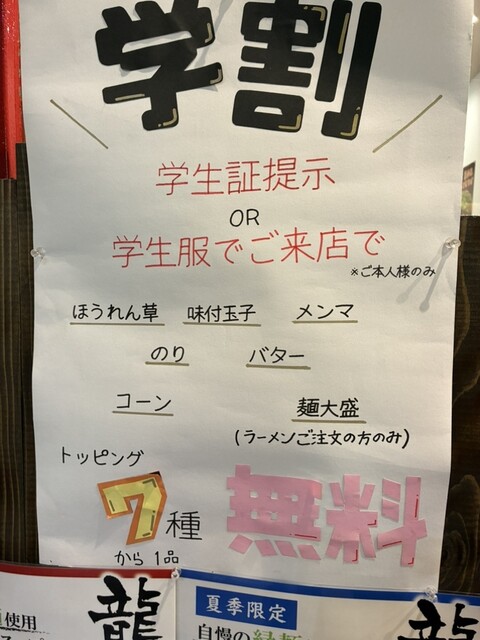 学割
学生証提示
OR
学生服でご来店で
※ご本人様のみ
ほうれん草 味付玉子 メンマ
のり バター
コーン 麺大盛
(ラーメンご注文の方のみ)
トッピング
7種 無料
から1品
使用
龍
夏季限定
自慢の
龍